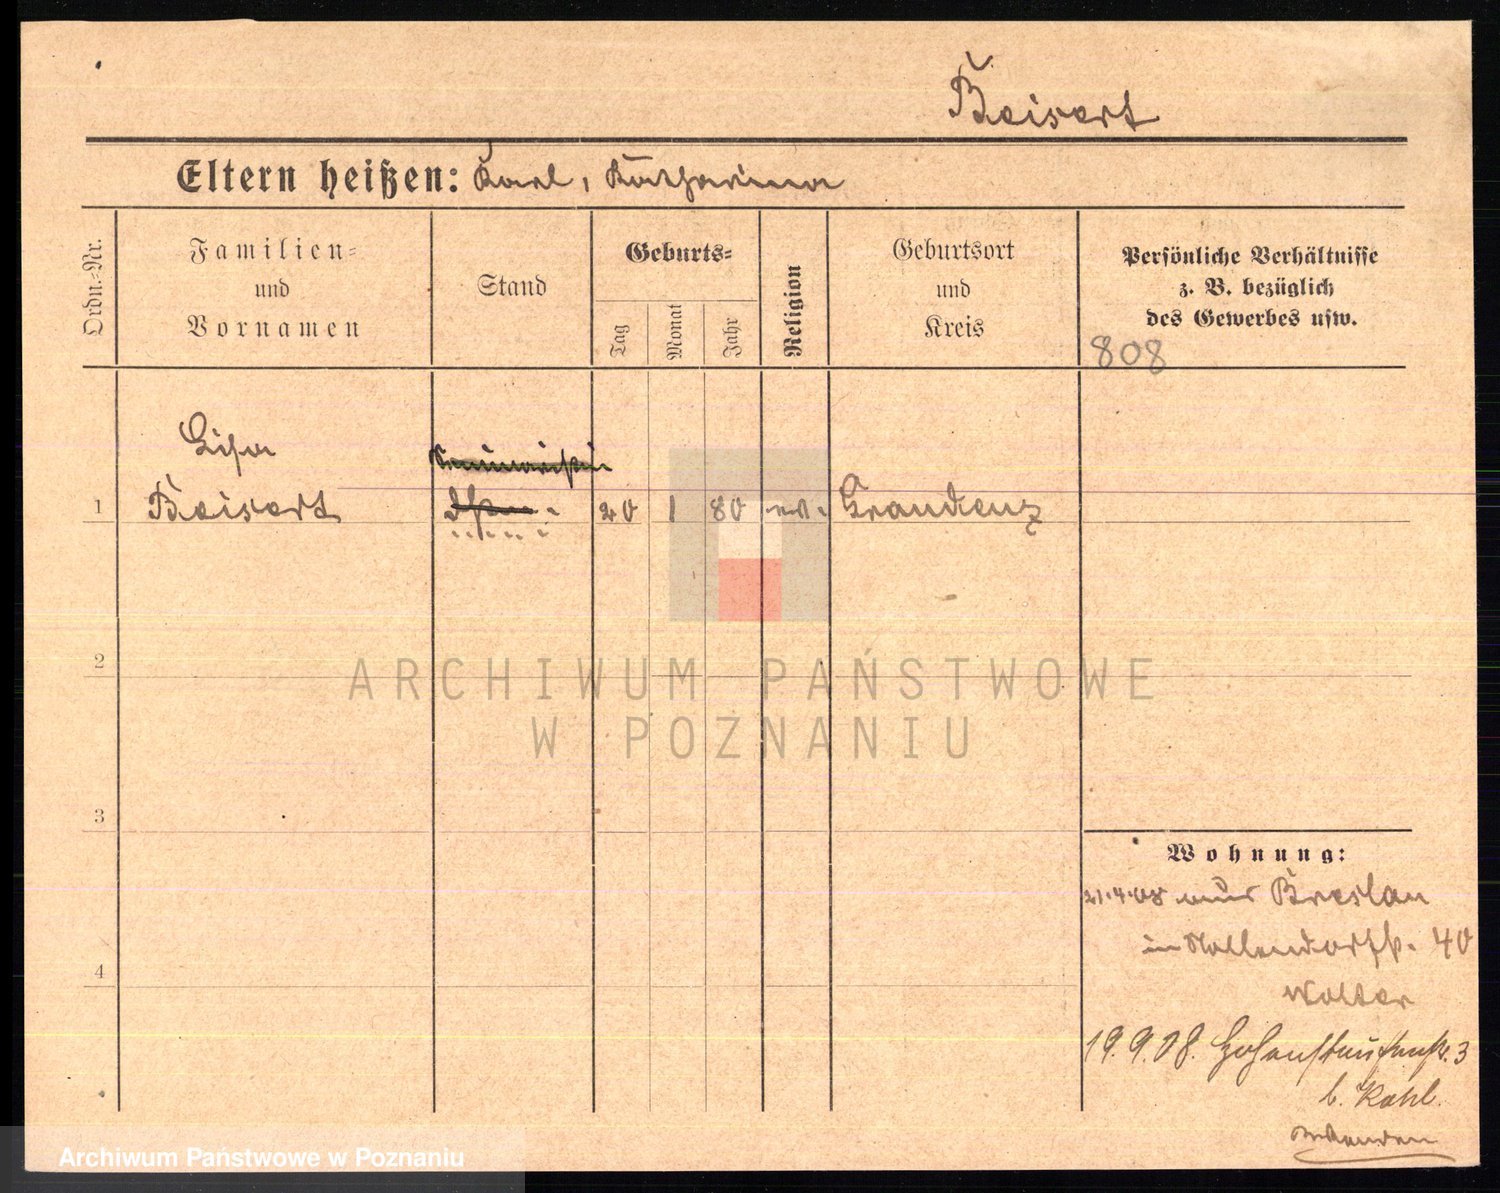 Beisert
Eltern heißen: Karl, Katharina
Ordn.-Nr.
Familien-
und
Vornamen
Stand
Geburts-
Tag
Monat
Jahr
Religion
Geburtsort
und
Kreis
Persönliche Verhältnisse
z. B. bezüglich
des Gewerbes usw.
808
Seminaristin
1 Beisert 20 1 80 ev. Graudenz
2
3
4
Wohnung:
21.4.08 aus Breslau
in Nollendorfstr. 40
Wolter
19.9.08. Hohenstaufenstr. 3
b. Kohl.
ARCHIWUM PAŃSTWOWE
W POZNANIU
Archiwum Państwowe w Poznaniu